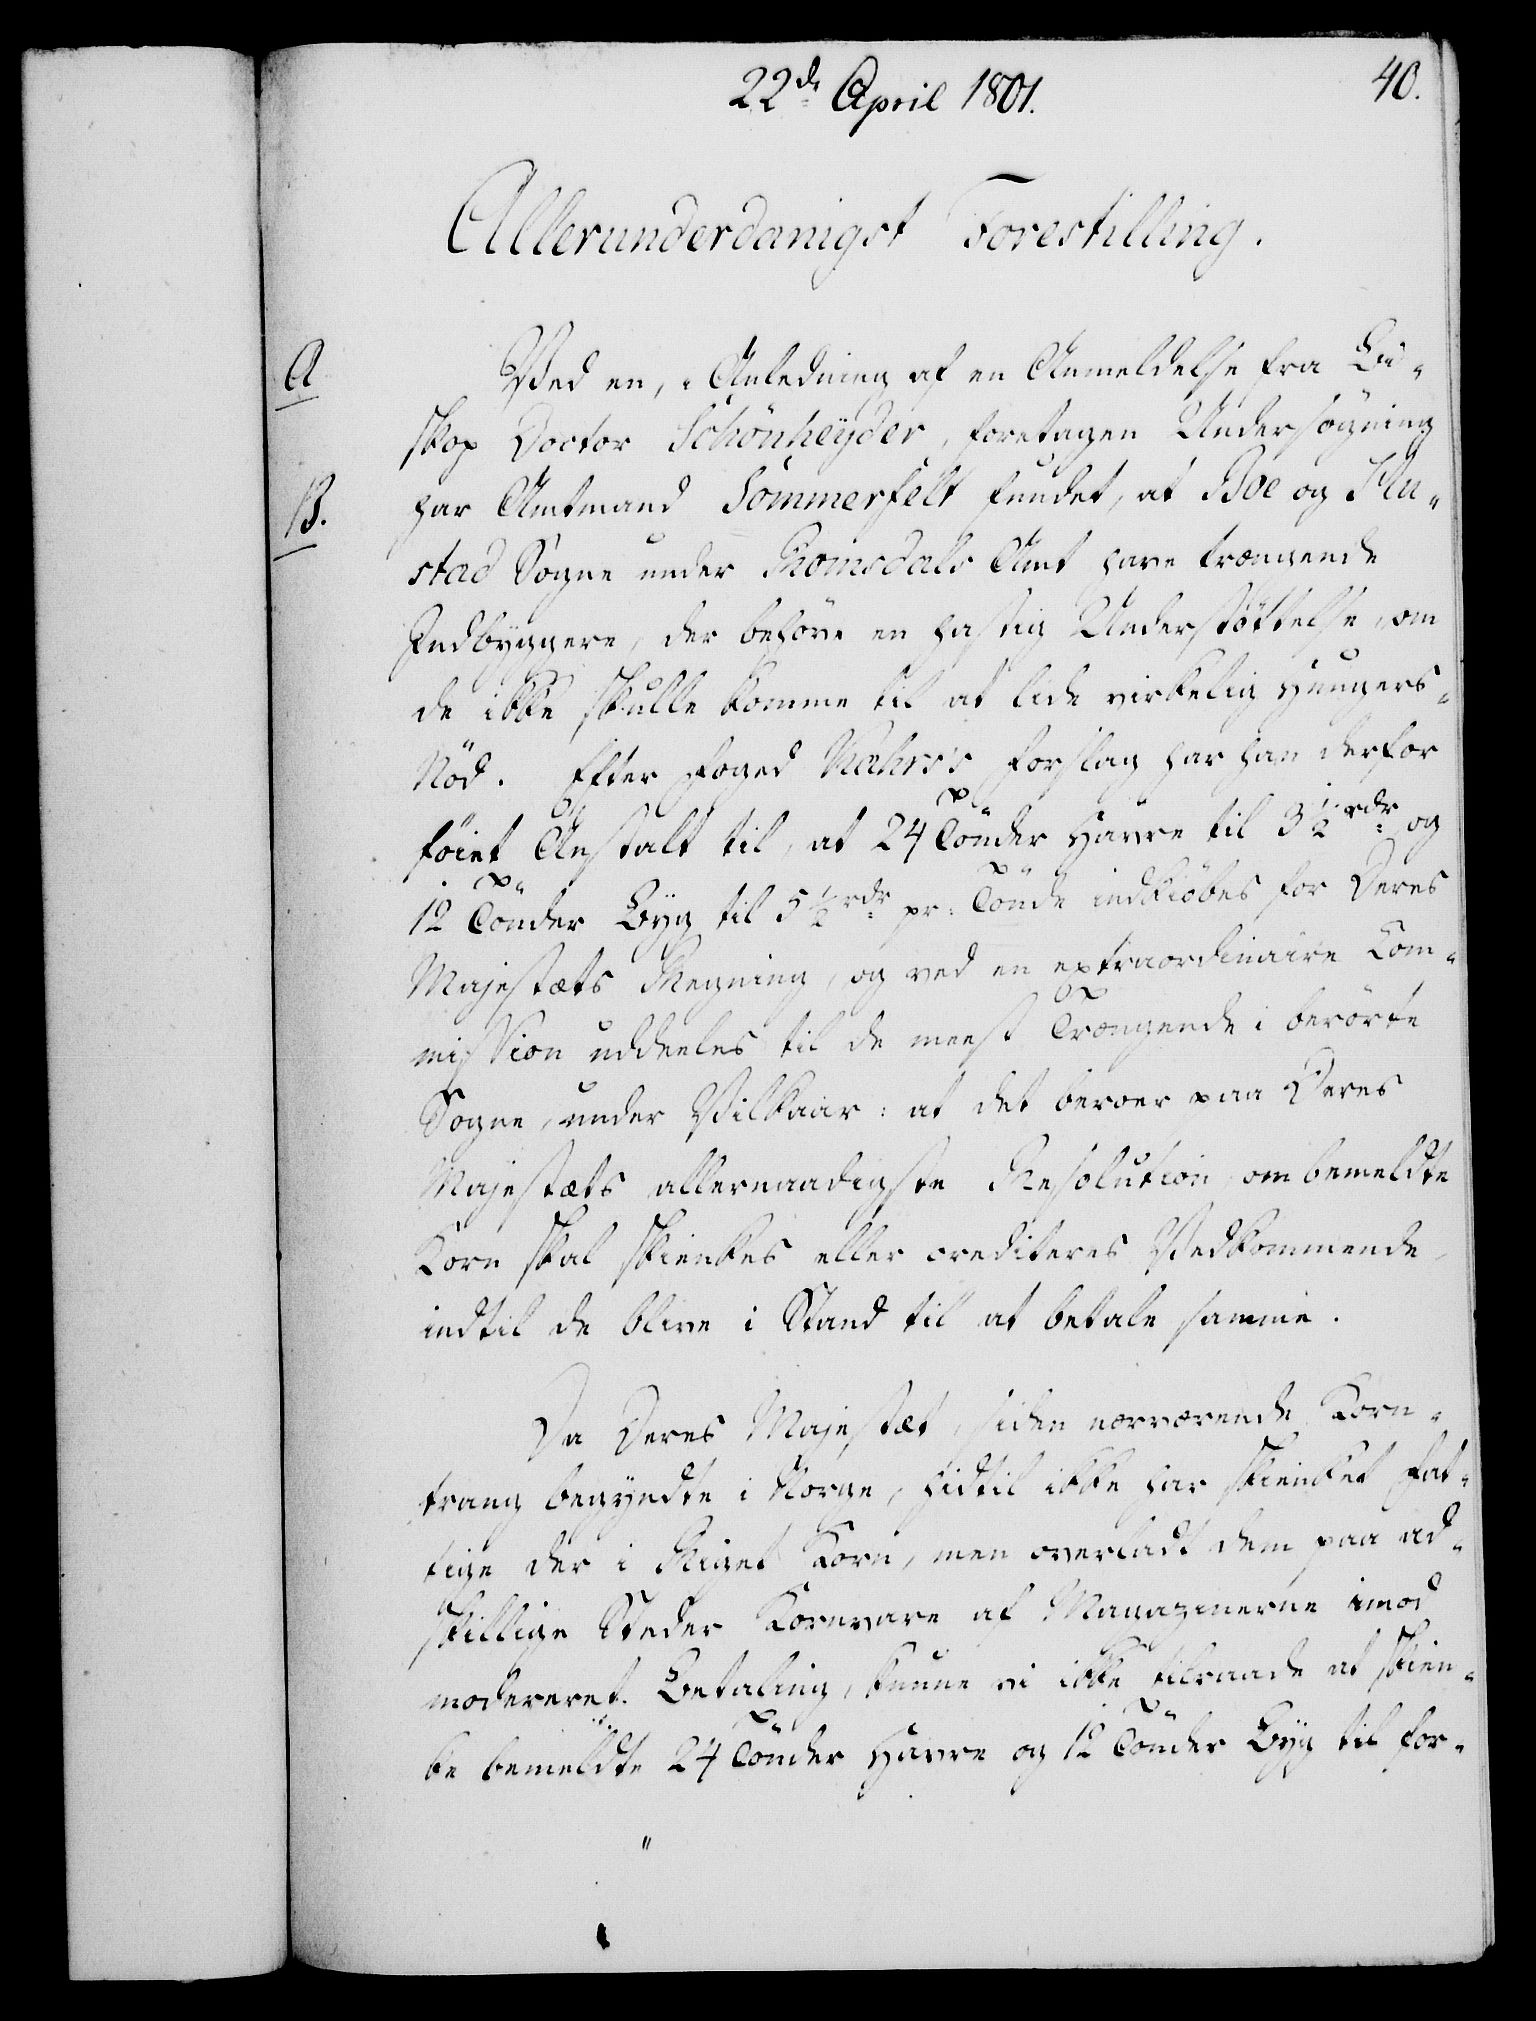 22de April 1801.
40.
Allerunderdanigst Forestilling.
A
Ved en, i Anledning af en Anmeldelse fra Bi-
skop Doctor Schönheyder, foretagen Undersøgning
B.
har Amtmand Sommerfelt fundet, at Boe og Hu-
stad Sogne under Romsdals Amt have trængende
Indbyggere, der behøve en hastig Understøttelse, om
de ikke skulle komme til at lide virkelig Hungers-
Nød. Efter Foged forslag har han derfor
føiet Anstalt til, at 24 Tønder Havre til 3½ rdr og
12 Tønder Byg til 5½ rdr pr: Tønde indkiøbes for Deres
Majestæts Regning, og ved en extraordinaire Com-
mission uddeeles til de meest Trængende i berørte
Sogne, under Vilkaar: at det beroer paa Deres
Majestæts allernaadigste Resolution, om bemeldte
Korn skal skienkes eller crediteres Vedkommende,
indtil de blive i Stand til at betale samme.
Da Deres Majestæt, siden nærværende Korn-
trang begyndte i Norge, hidtil ikke har skienket Fat-
tige der i Riget Korn, men overladt dem paa ad-
skillige Steder Kornvare af Magazinerne imod
modereret Betaling, kunne vi ikke tilraade at skien-
ke bemeldte 24 Tønder Havre og 12 Tønder Byg til for-